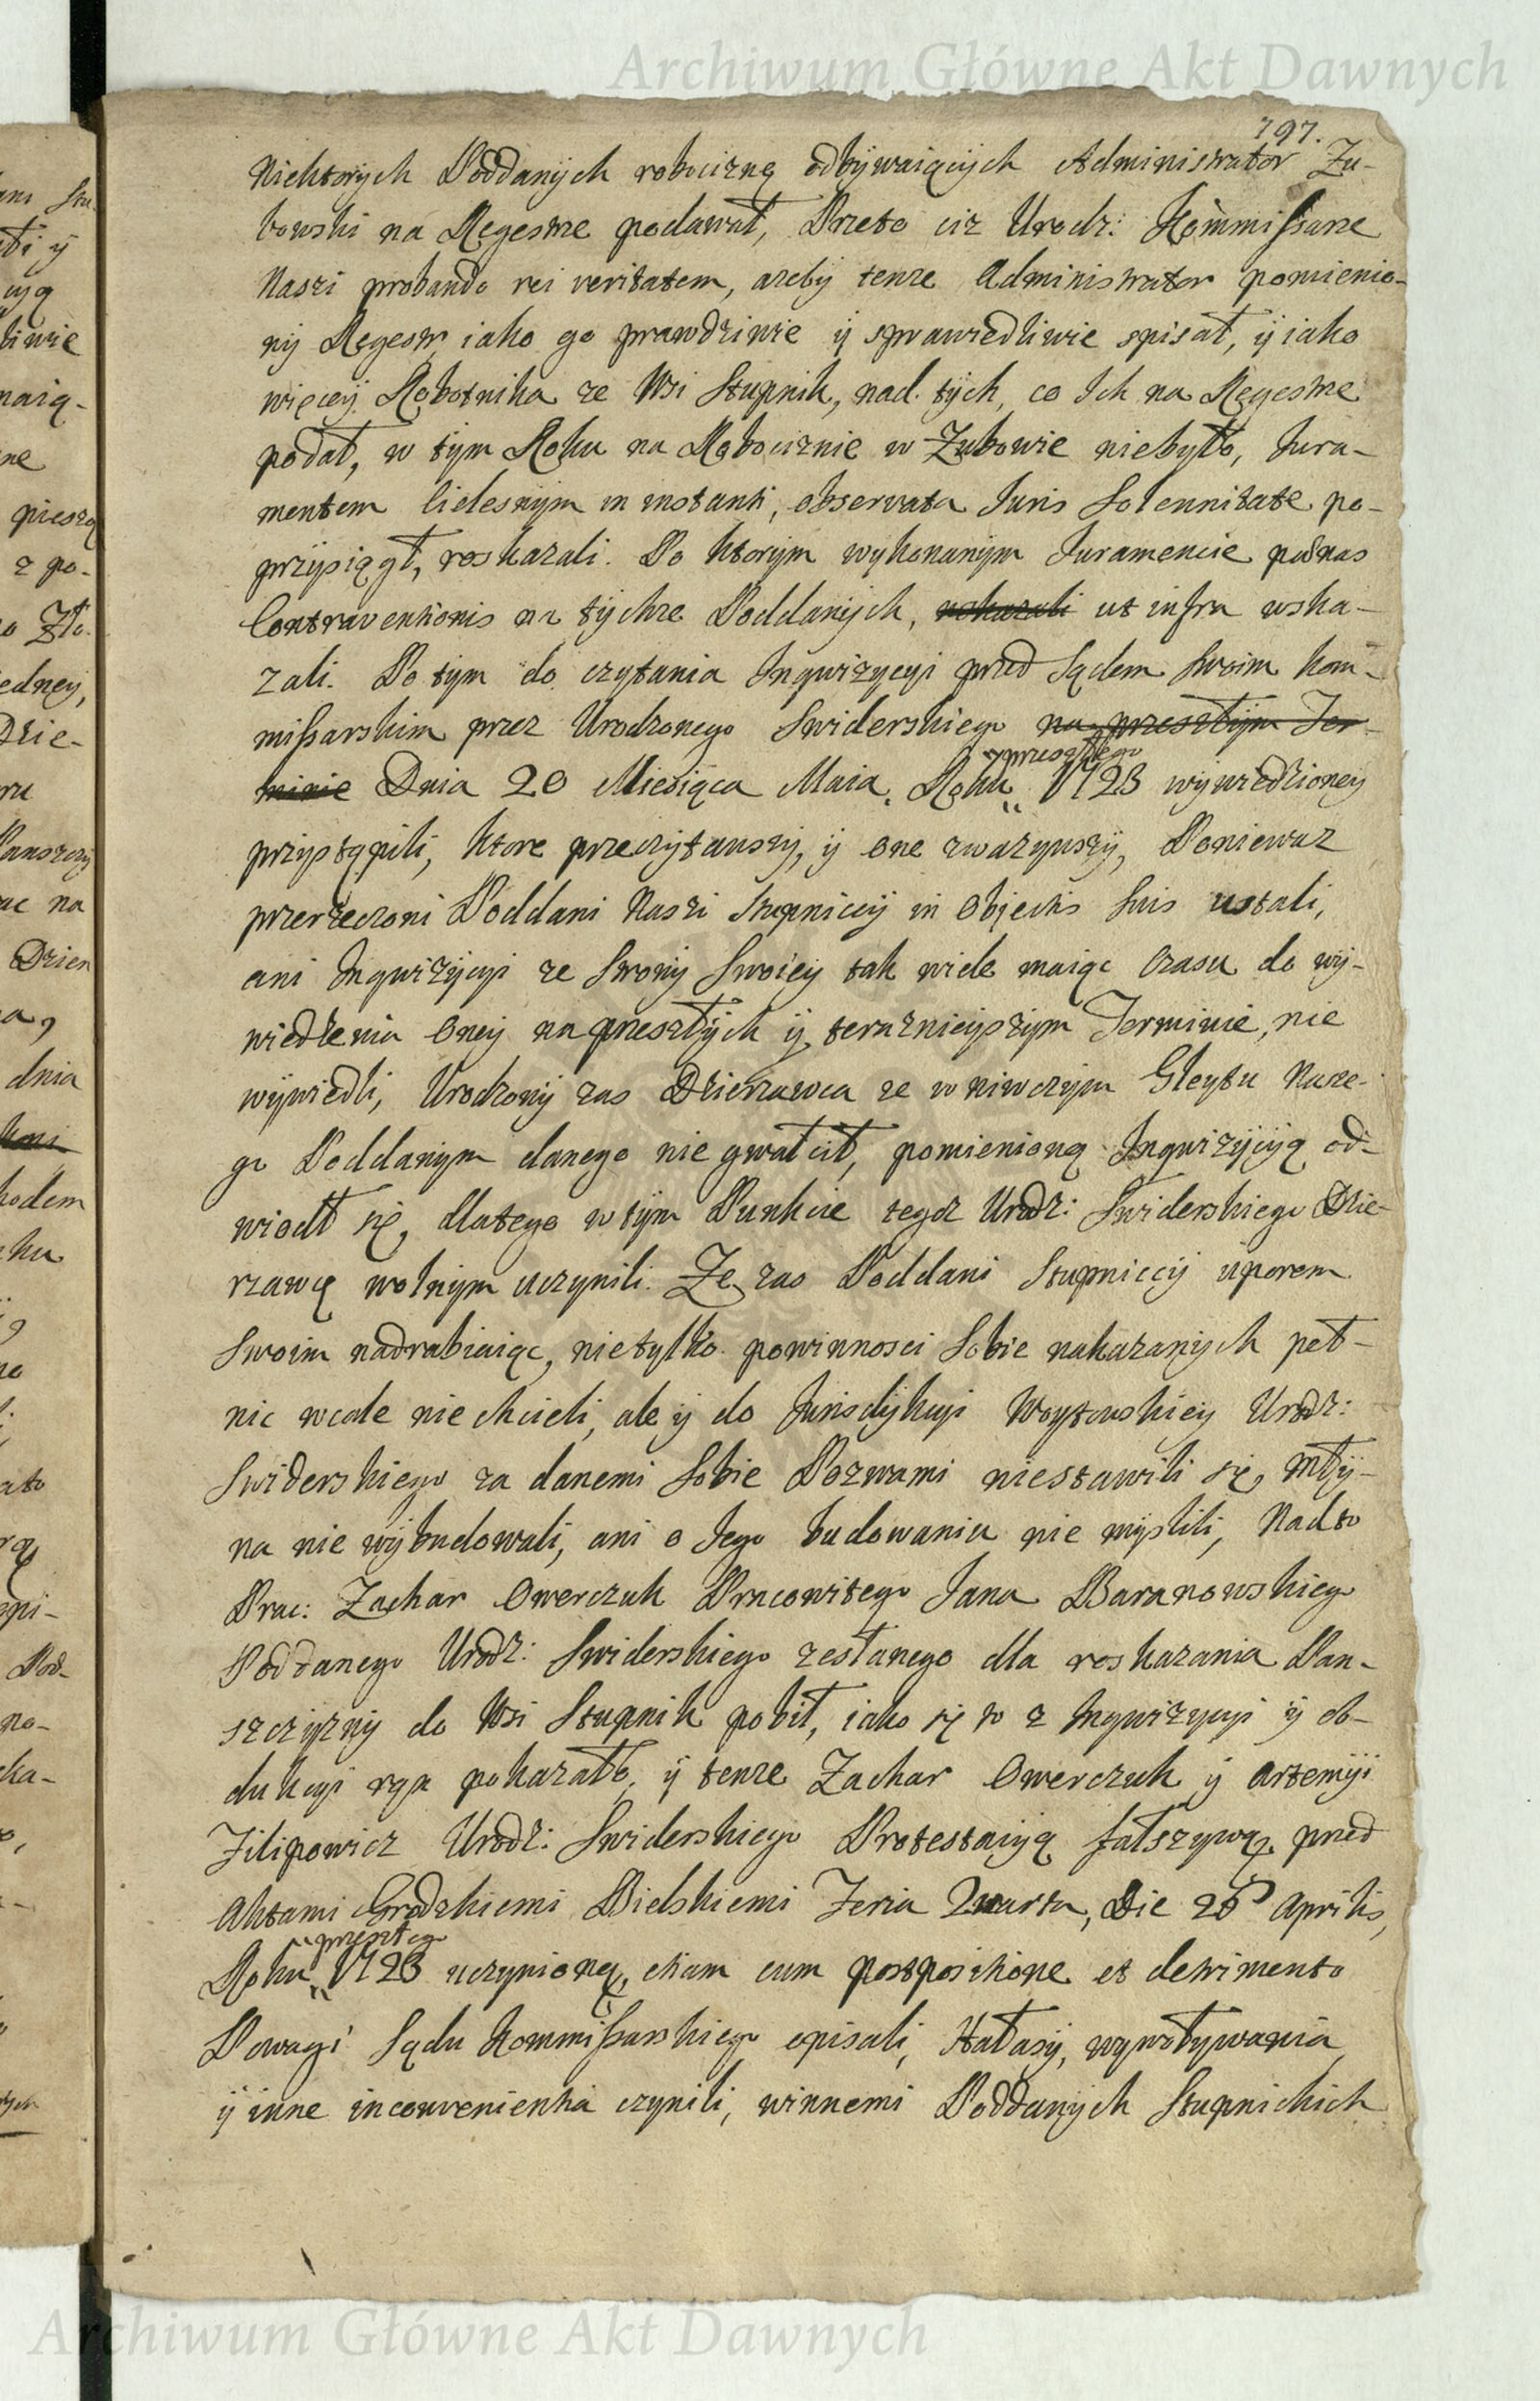 Archiwum Główne Akt Dawnych
797.
Niektorych Poddanych robociznę odbywaiących Administrator Zu-
bowski na Regestrze podawał, Przeto ciz Urodz: Kommissarze
Naszi probando rei veritatem, azeby tenze Administrator pomienio-
ny Regestr iako go prawdziwie y sprawiedliwie spisał, y iako
więcey Robotnika ze Wsi Stupnik, nad tych, co Ich na Regestrze
podał, w tym Roku na Robociznie w Zubowie niebyło, Jura-
mentem cielesnym in instanti, observata Juris Solennitate po-
przysiągł, roskazali. Po ktorym wykonanym Juramencie pænas
Contraventionis na tychze Poddanych, ut infra wska-
zali. Po tym do czytania Inqwizycyi przed Sądem Swoim Kom-
missarskim przez Urodzonego Swiderskiego na przeszłym Ter-
minie Dnia 20 Miesiąca Maia Roku przeszłego 1723 wywiedzioney
przystąpili, ktore przeczytawszy, y one zwazywszy, Poniewaz
przerzeczoni Poddani Naszi Stupniccy in Objectis Suis ustali,
ani Inqwizycyi ze Strony Swoiey tak wiele maiąc Czasu do wy-
wiedzenia Oney na przeszłych y teraznieyszym Terminie, nie
wywiedli, Urodzony zas Dzierzawca ze w niwczym Gleytu Nasze-
go Poddanym danego nie gwałcił, pomienioną Inqwizycyą od-
wiodł się, dlatego w tym Punkcie tegoz Urodz: Swiderskiego Dzie-
rzawcę wolnym uczynili. Ze zas Poddani Stupniccy uporem
Swoim nadrabiaiąc, nietylko powinnosci Sobie nakazanych peł-
nic wcale nie chcieli, ale y do Jurisdykcyi Woytowskiey Urodz:
Swiderskiego za danemi Sobie Pozwami niestawili się, Mły-
na nie wybudowali, ani o Jego budowaniu nie myslili, Nadto
Prac: Zachar Owerczuk Pracowitego Jana Baranowskiego
Poddanego Urodz: Swiderskiego zesłanego dla roskazania Pan-
szczyzny do Wsi Stupnik pobił, iako się to z Inqwizycyi y ob-
dukcyi rąn pokazało, y tenze Zachar Owerczuk y Artemyi
Filipowicz Urodz: Swiderskiego Protestacyą fałszywą przed
Aktami Grodzkiemi Bielskiemi Feria Quarta, Die Aprilis,
Roku przeszłego 1723 uczynioną, etiam cum postpositione et detrimento
Powagi Sądu Kommissarskiego opisali, Hałasy, wywoływania
y inne inconvenientia czynili, winnemi Poddanych Stupnickich
Archiwum Główne Akt Dawnych